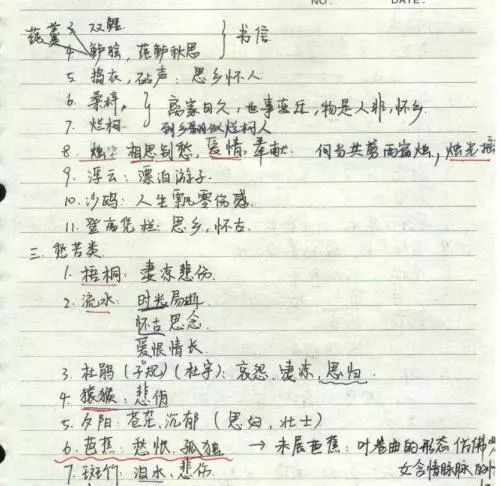 NO. DATE.
莼羹 3. 双鲤 } 书信
4. 鲈脍, 莼鲈秋思
5. 捣衣, 砧声: 思乡怀人.
6. 桑梓, } 离家日久, 世事变迁, 物是人非, 怀乡
7. 烂柯. 到乡翻似烂柯人
8. 烛: 相思别愁, 爱情, 奉献. 何当共剪西窗烛, 烛光摇
9. 浮云: 漂泊游子.
10. 沙鸥: 人生飘零伤感.
11. 登高凭栏: 思乡, 怀古.
三. 愁苦类
1. 梧桐: 凄凉悲伤.
2. 流水: 时光易逝
怀古思念.
爱恨情长.
3. 杜鹃 (子规) (杜宇): 哀怨, 凄凉, 思归.
4. 猿猴: 悲伤
5. 夕阳: 苍茫, 沉郁 (思妇, 壮士)
6. 芭蕉: 愁恨, 孤独 → 未展芭蕉: 叶卷曲的形态仿佛
7. 斑竹: 泪水, 悲伤. 女含情脉脉的